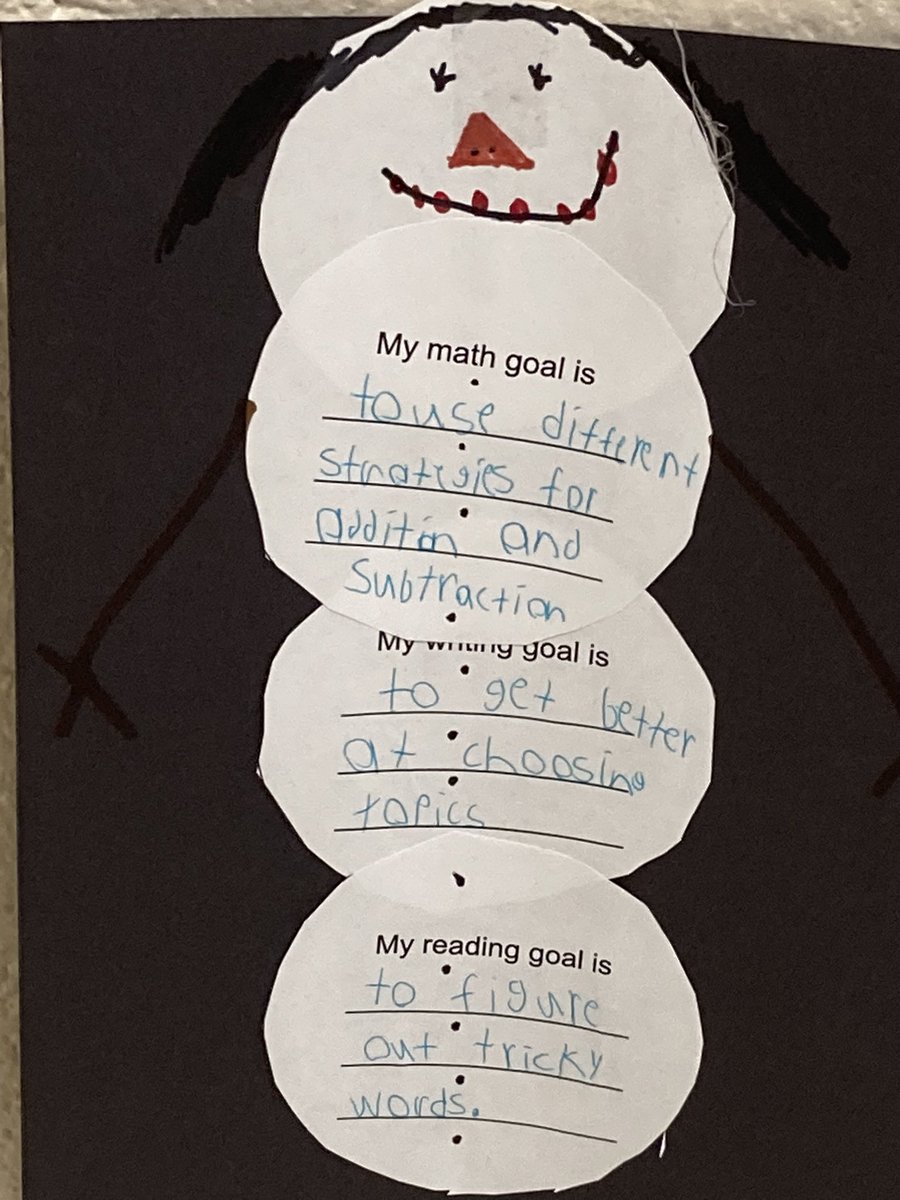 My math goal is
to use different
strategies for
additin and
subtraction
My writing goal is
to get better
at choosing
topics
My reading goal is
to figure
out tricky
words.